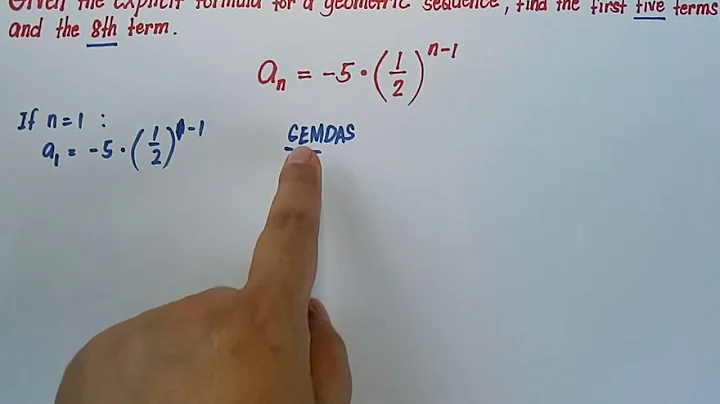 Given the explicit formula for a geometric sequence, find the first five terms
and the 8th term.
aₙ = -5 · (1/2)ⁿ⁻¹
If n=1 :
a₁ = -5 · (1/2)¹⁻¹
GEMDAS